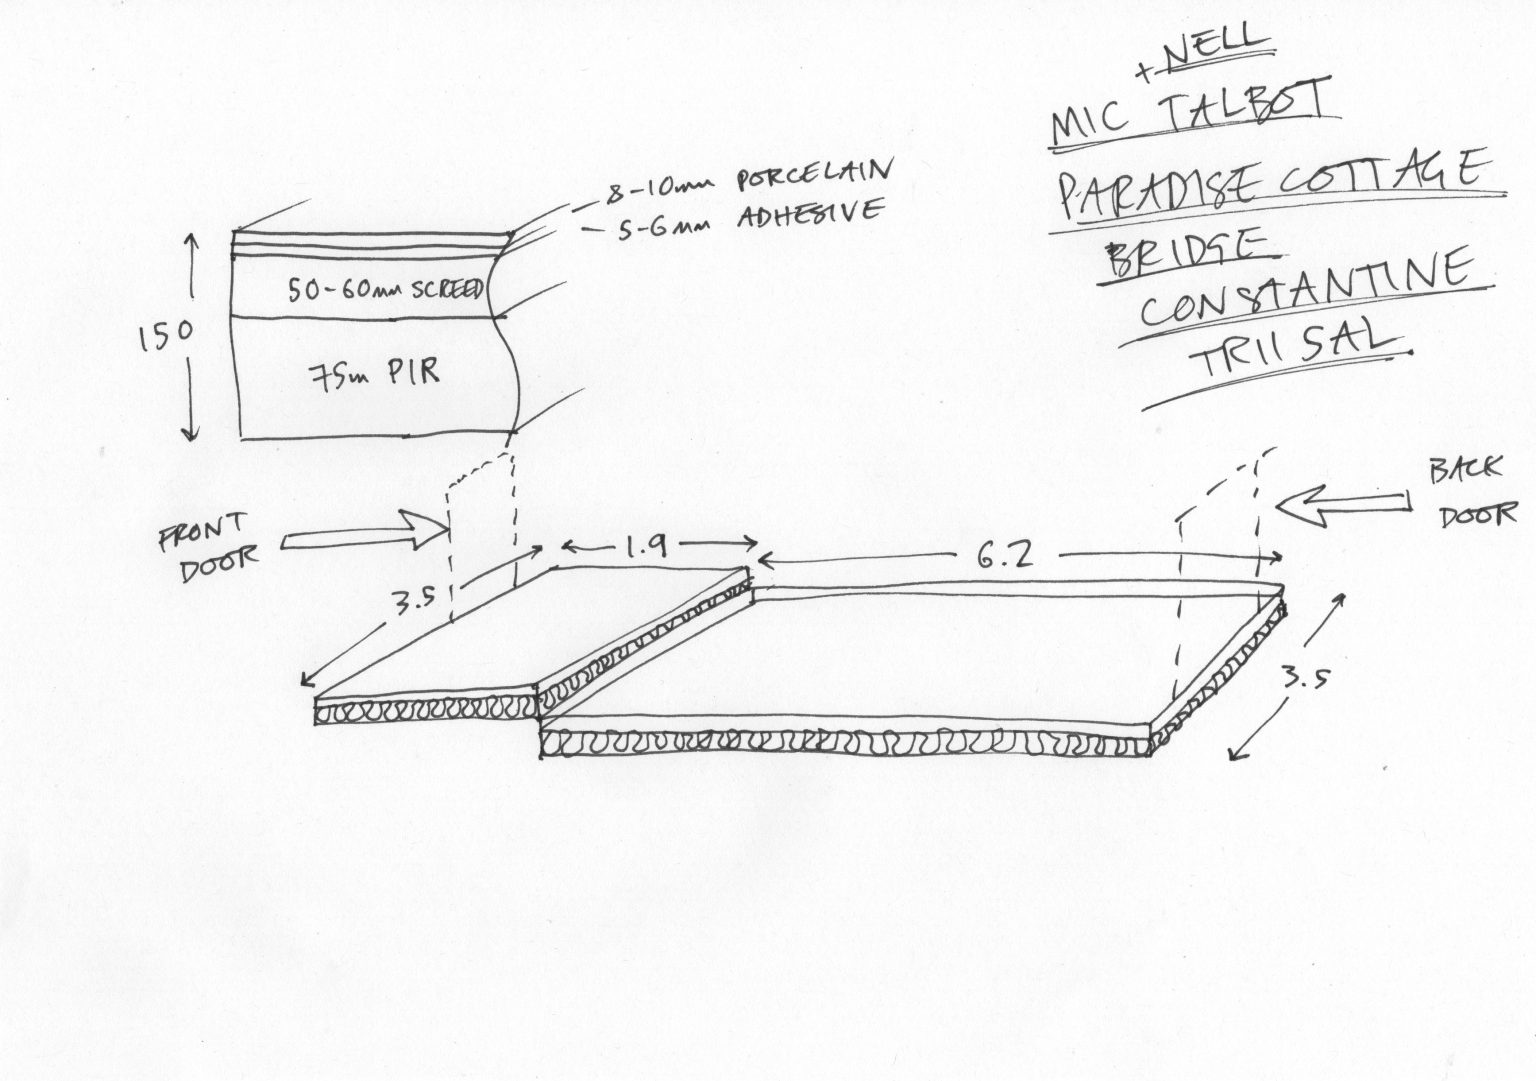 + NELL
MIC TALBOT
PARADISE COTTAGE
BRIDGE
CONSTANTINE
TR11 5AL
8-10mm PORCELAIN
5-6mm ADHESIVE
50-60mm SCREED
150
75m PIR
FRONT
DOOR
BACK
DOOR
3.5
1.9
6.2
3.5